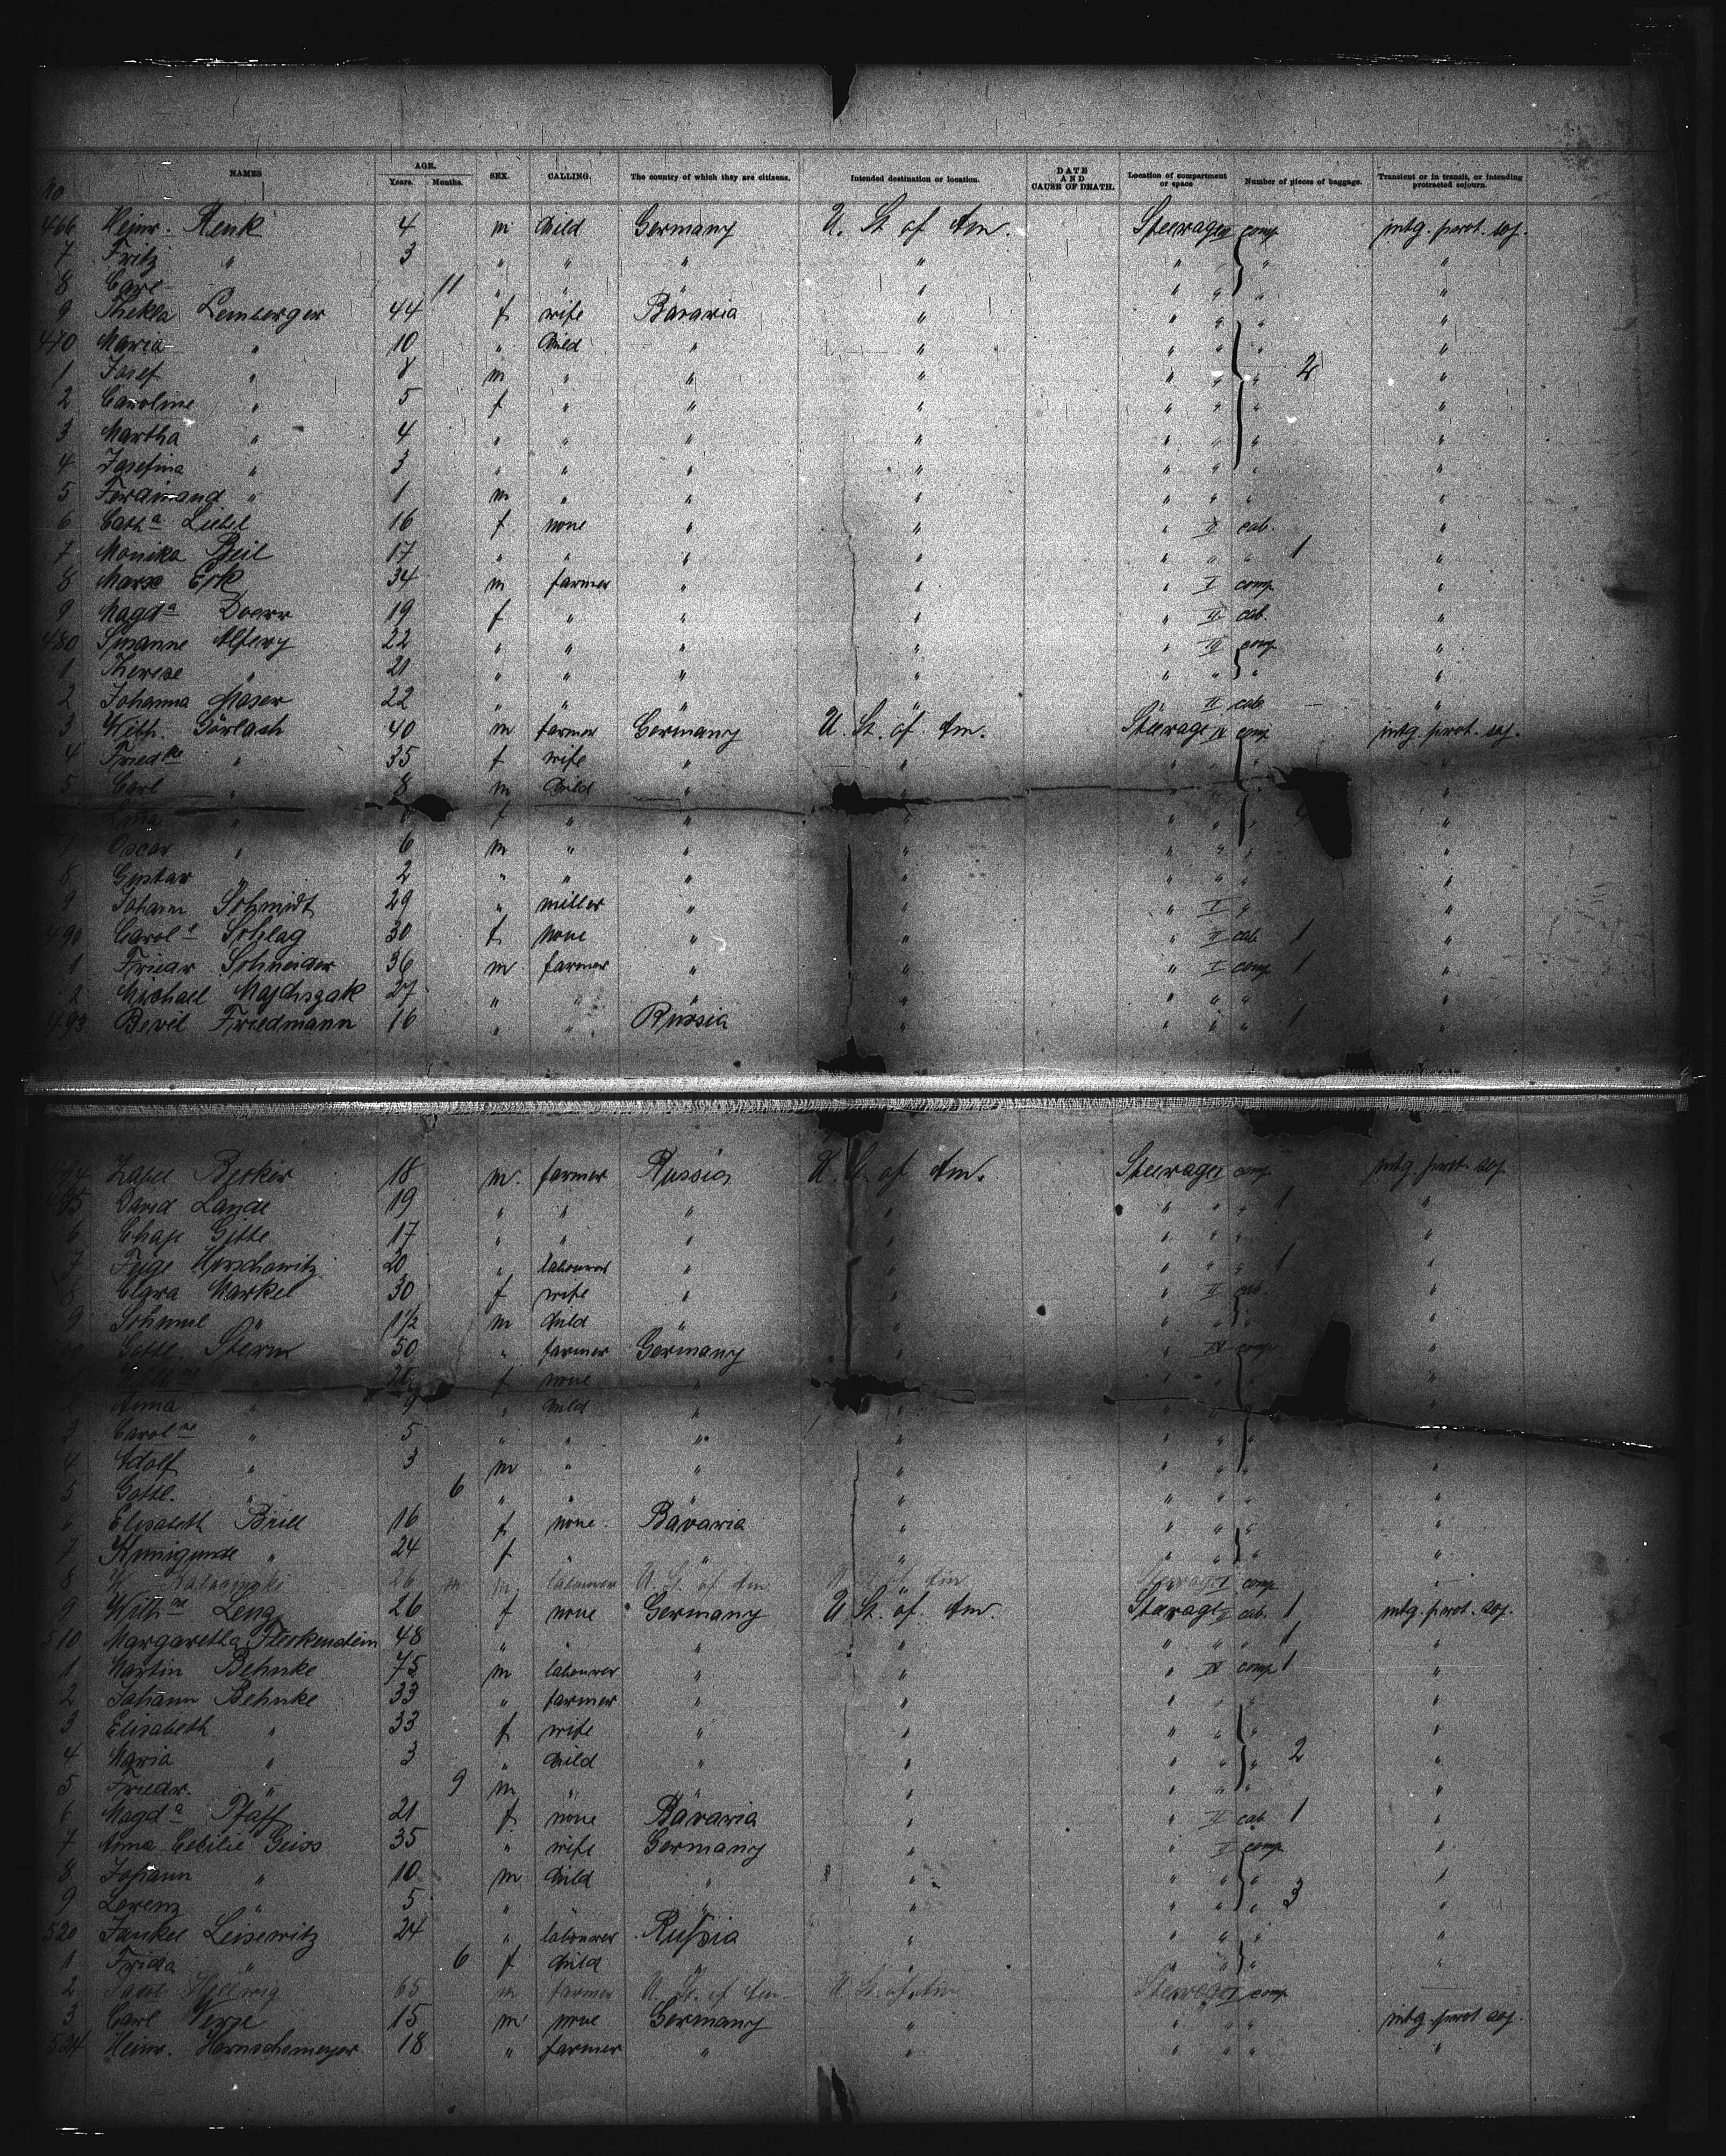 No NAMES AGE. Years. Months. SEX. CALLING. The country of which they are citizens. Intended destination or location. DATE AND CAUSE OF DEATH. Location of compartment or space Number of pieces of baggage. Transient or in transit, or intending protracted sojourn.
466 Heinr. Renk 4 m child Germany U. St. of Am. Steerage IV comp intg. prot. soj.
7 Fritz " 3 " " " " " " " "
8 Carl 11 " " " " " " " "
9 Thekla Lemberger 44 f wife Bavaria " " " " "
470 Maria " 10 " child " " " " " "
1 Josef " 8 m " " " " " " 2 "
2 Caroline " 5 f " " " " " " "
3 Martha " 4 " " " " " " " "
4 Josefina " 3 " " " " " " " "
5 Ferdinand " 1 m " " " " " " "
6 Cath.a Liebel 16 f none " " " II cab. "
7 Monika Beil 17 " " " " " " " 1 "
8 Marx Erk 34 m farmer " " " I comp "
9 Magd.a Doerr 19 f " " " " II cab. "
480 Susanne Alfery 22 " " " " " IV comp "
1 Therese " 21 " " " " " " " "
2 Johanna Moser 22 " " " " " II cab "
3 Wilh. Görlach 40 m farmer Germany U. St. of Am. Steerage IV comp intg. prot. soj.
4 Friedke " 35 f wife " " " " " "
5 Carl " 8 m child " " " " "
Lina " f " " " " " "
7 Oscar " 6 m " " " " " " "
8 Gustav " 2 " " " " " " " "
9 Johann Schmidt 29 " miller " " " I " "
490 Carol.e Schlag 30 f none " " " II cab 1 "
1 Friedr Schneider 36 m farmer " " " I comp 1 "
2 Michael Majchszak 27 " " " " " " " "
493 Bevil Friedmann 16 " " Russia " " " " 1 "
494 Zabel Berkir 18 m. farmer Russia U. St. of Am. Steerage I comp intg. prot. soj
495 David Lande 19 " " " " " " " 1 "
6 Chaje Gitte 17 " " " " " " " "
7 Feige Herschowitz 20 " labourer " " " " " 1 "
8 Clara Markel 30 f wife " " " II cab. "
9 Schmul " 1 1/2 m child " " " " " "
Gottl. Sterm 50 " farmer Germany " " IV comp "
" f none " " " "
2 Anna " 9 " child " " " " "
3 Carol.ne " 5 " " " " " " " "
4 Adolf " 3 m " " " " " " "
5 Gottl. " 6 " " " " " " " "
6 Elisabeth Brill 16 f none. Bavaria " " " " "
7 Kunigunde " 24 f " " " " " " "
8 26 m labourer U. St. of Am Steerage I comp
9 Wilh.ne Leng 26 f none Germany U St. of Am. Steerage II cab. 1 intg. prot. soj.
510 Margaretha Fleckenstein 48 " " " " " " " 1 "
1 Martin Behnke 75 m labourer " " " IV comp 1 "
2 Johann Behnke 33 " farmer " " " " "
3 Elisabeth " 33 f wife " " " " " "
4 Maria " 3 " child " " " " " 2 "
5 Friedr. " 9 m " " " " " " "
6 Magd.a Pfaff 21 f none Bavaria " " II cab 1 "
7 Anna Cecilie Geiss 35 " wife Germany " " comp "
8 Johann " 10 m child " " " " " "
9 Lorenz 5 " " " " " " " 3 "
520 Jankel Leisewitz 24 " labourer Russia " " " " "
1 Frida " 6 f child " " " " " "
2 Jacob Hellwig 65 m farmer U. St. of Am. U. St. of Am Steerage I comp
3 Carl 15 m none Germany " " " " intg. prot soj.
524 Heinr. Hornschemeyer 18 " farmer " " " " " "